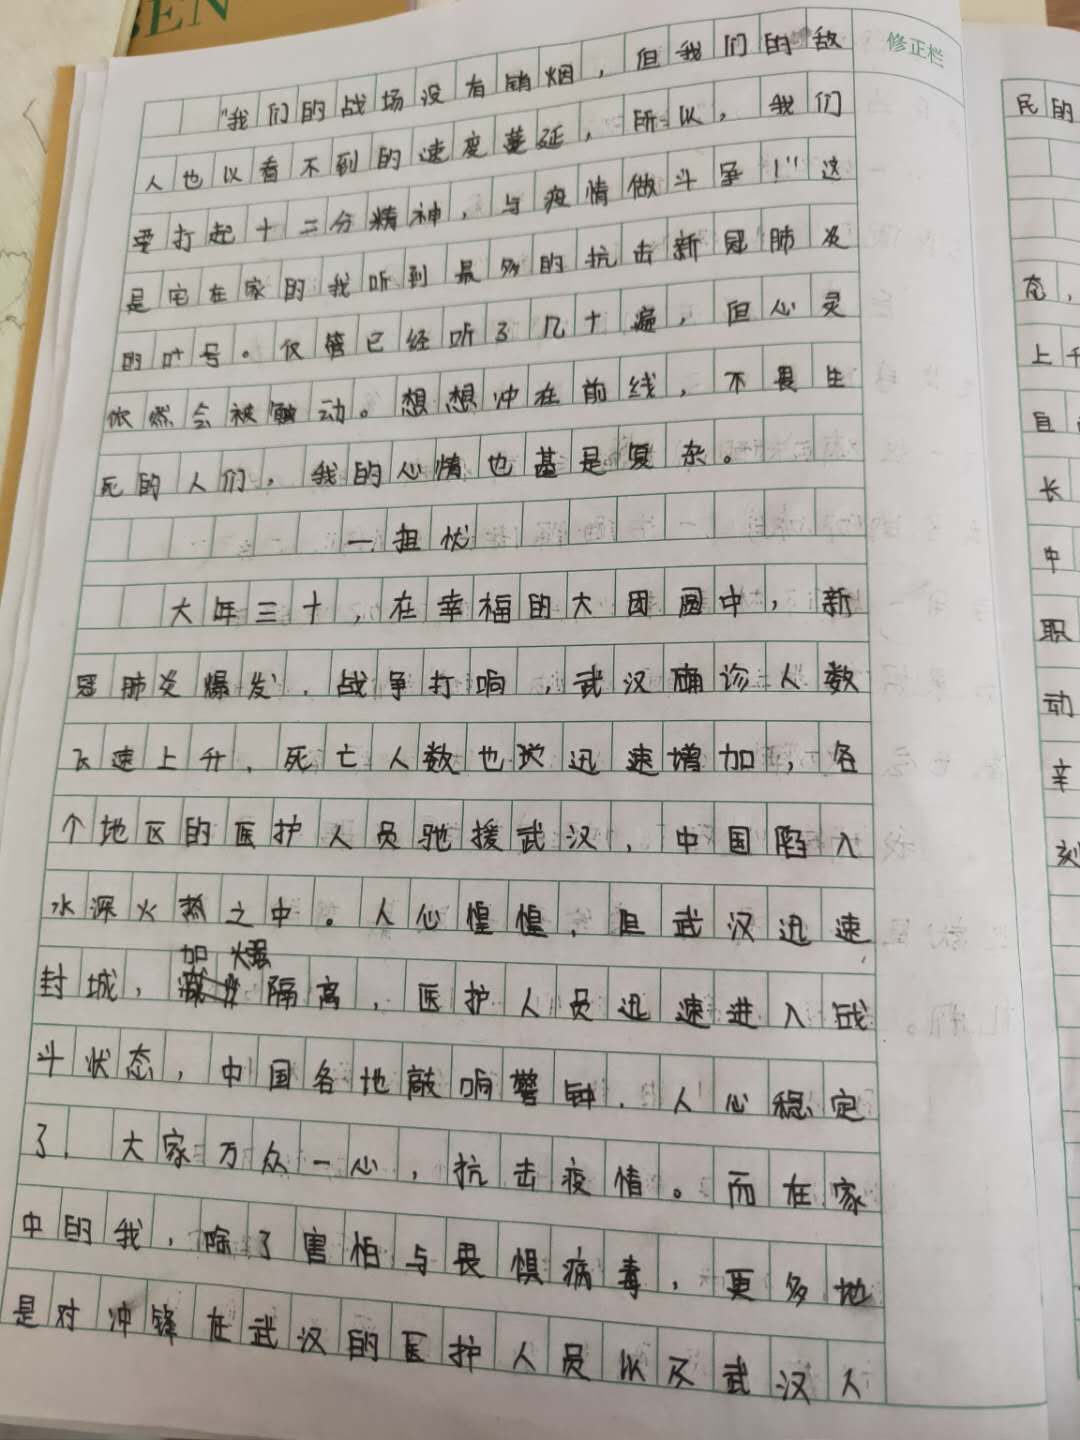 BEN
修正栏
"我们的战场没有销烟，但我们的敌
人也以看不到的速度蔓延，所以，我们
要打起十二分精神，与疫情做斗争！"这
是宅在家的我听到最多的抗击新冠肺炎
的叶号。仅管已经听了几十遍，但心灵
依然会被触动。想想冲在前线，不畏生
死的人们，我的心情也甚是复杂。
一担忧
大年三十，在幸福的大团圆中，新
冠肺炎爆发，战争打响，武汉确诊人数
飞速上升，死亡人数也迅速增加，各
个地区的医护人员驰援武汉，中国陷入
水深火热之中。人心惶惶，但武汉迅速
封城，加强隔离，医护人员迅速进入战
斗状态，中国各地敲响警钟，人心稳定
了，大家万众一心，抗击疫情。而在家
中的我，除了害怕与畏惧病毒，更多地
是对冲锋在武汉的医护人员以及武汉人
民的
态，
上升
自
长
中
职
动
辛
刻